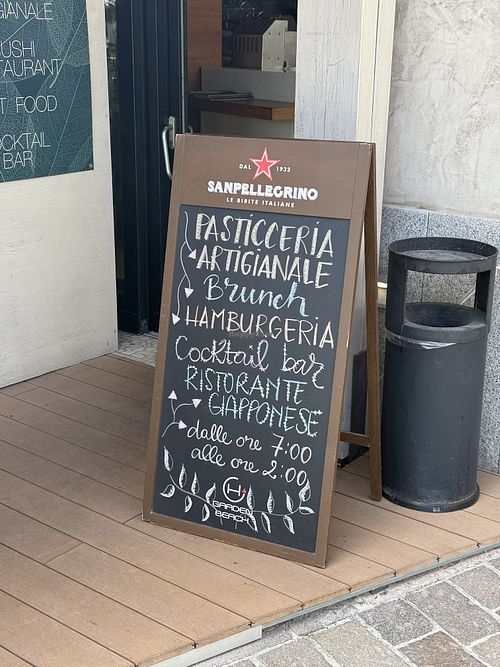 SUSHI
FOOD
COCKTAIL
BAR
DAL 1932
SANPELLEGRINO
LE BIBITE ITALIANE
PASTICCERIA
ARTIGIANALE
Brunch
HAMBURGERIA
Cocktail bar
RISTORANTE
GIAPPONESE
dalle ore 7:00
alle ore 2:00
GARDEN
BEACH